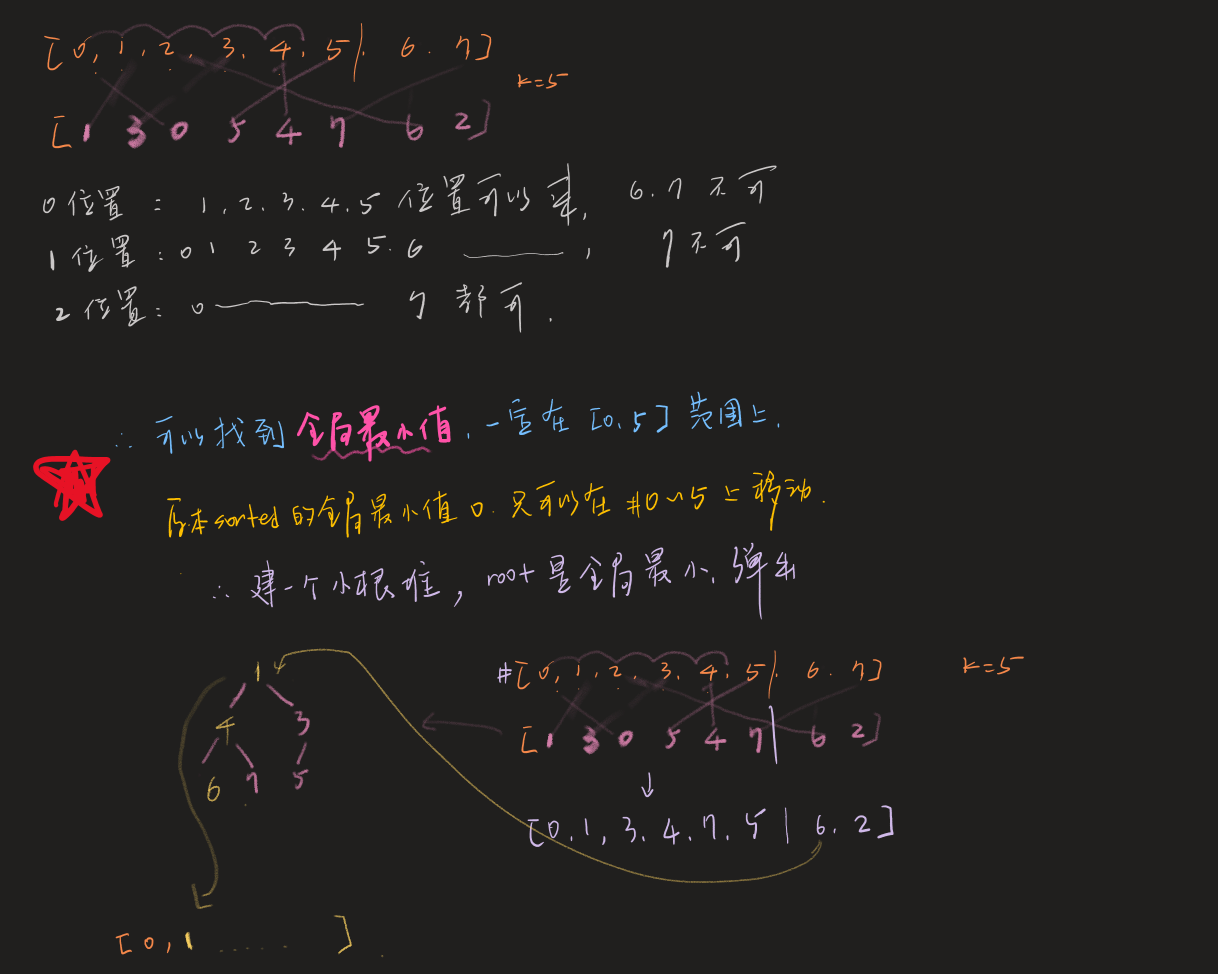 [0, 1, 2, 3, 4, 5 |. 6. 7]
k=5
[1 3 0 5 4 7 6 2]
0位置: 1, 2, 3, 4, 5 位置可以来, 6.7 不可
1位置: 0 1 2 3 4 5. 6 , 7不可
2位置: 0 7 都可.
∴ 可以找到全局最小值, 一定在 [0, 5] 范围上,
原本sorted的全局最小值 0. 只可以在 #0~5 上移动.
∴ 建一个小根堆, root是全局最小, 弹出
1
4 3
6 7 5
#[0, 1, 2, 3, 4, 5 |. 6. 7] k=5
[1 3 0 5 4 7 | 6 2]
[0, 1, 3, 4, 7, 5 | 6, 2]
[0, 1 ...... ]